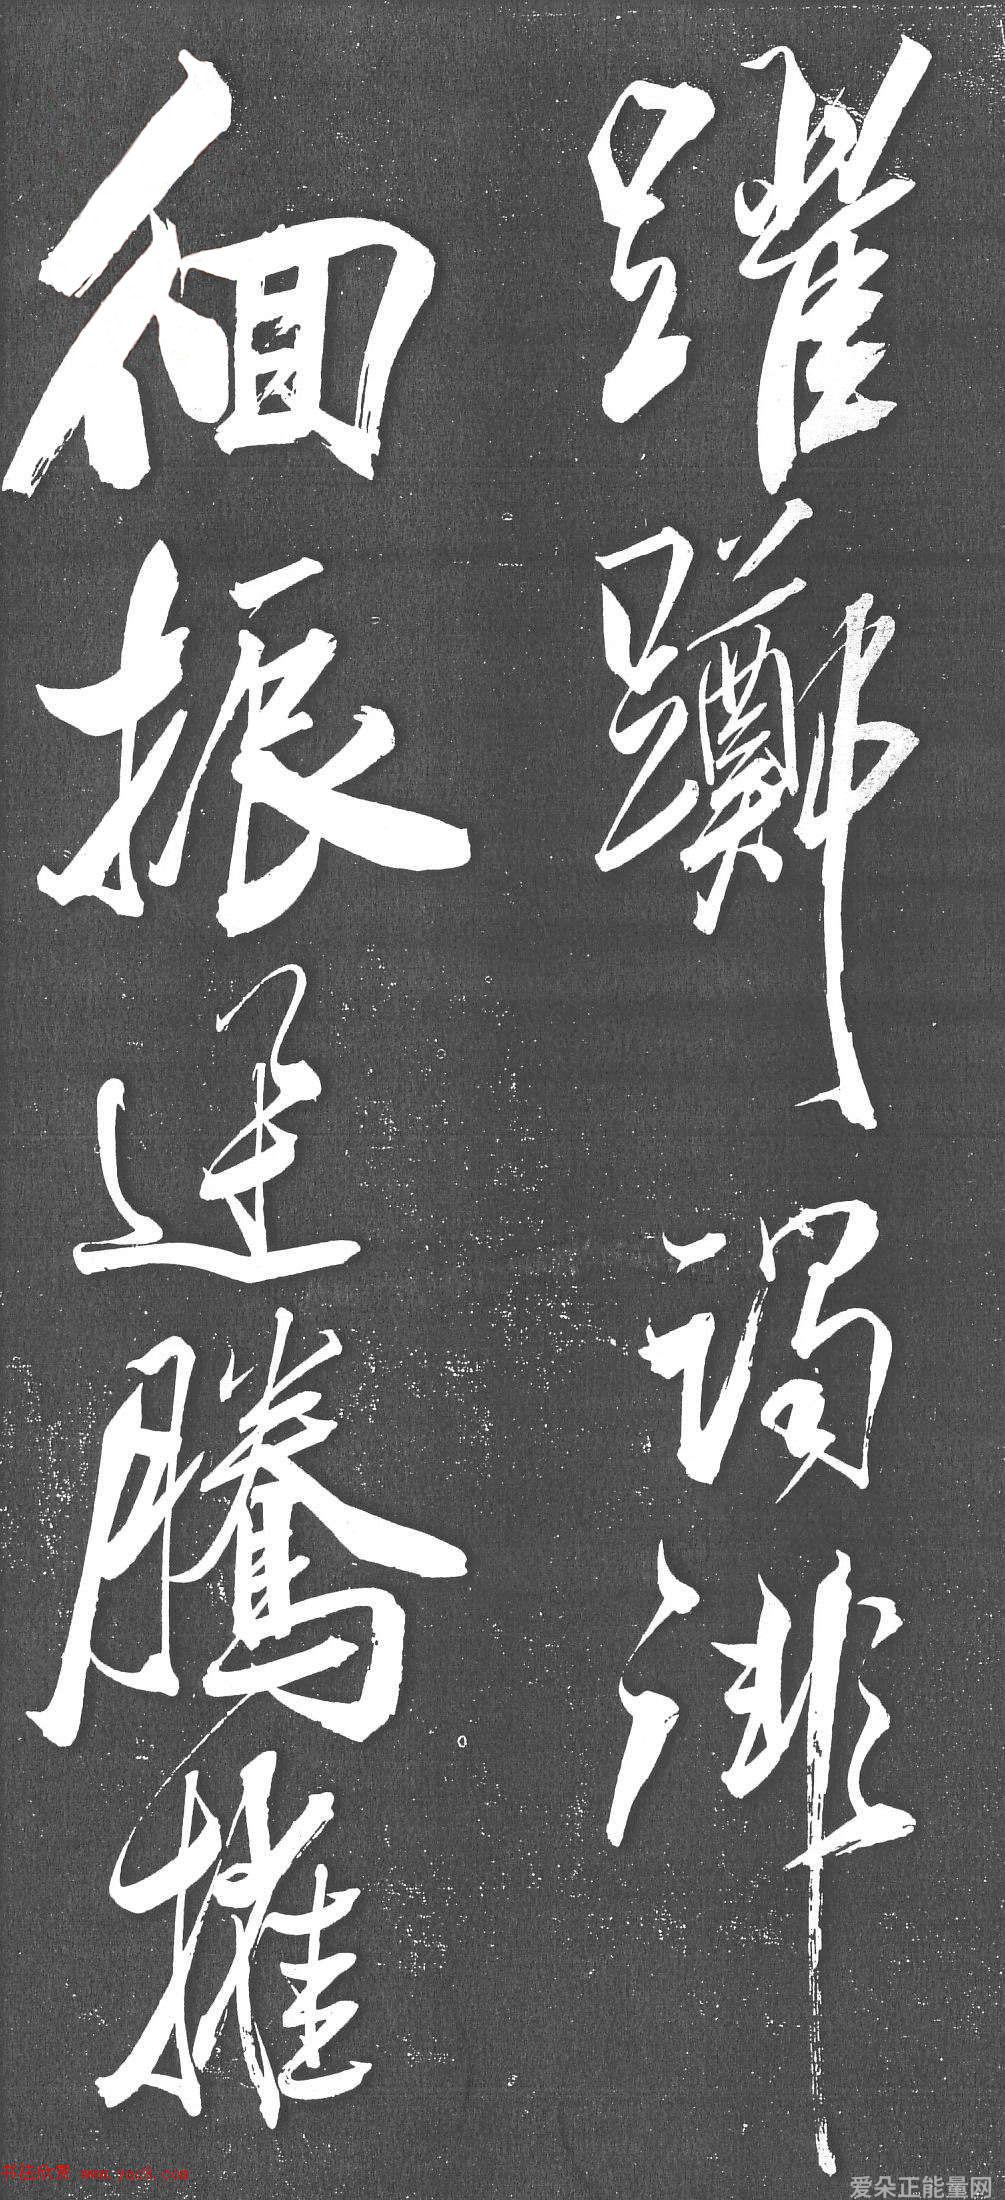 躍躑謁誹
徊振騰
书法欣赏 www.yac8.com
爱朵正能量网